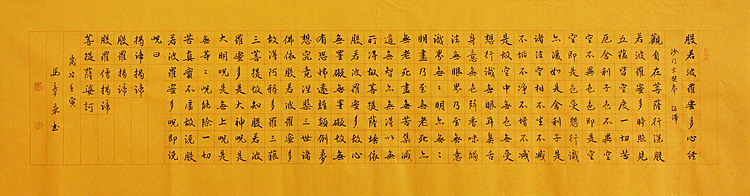 般若波羅蜜多心經
沙門玄奘奉 詔譯
觀自在菩薩行深般
若波羅蜜多時照見
五蘊皆空度一切苦
厄舍利子色不異空
空不異色色即是空
空即是色受想行識
亦復如是舍利子是
諸法空相不生不滅
不垢不淨不增不減
是故空中無色無受
想行識無眼耳鼻舌
身意無色聲香味觸
法無眼界乃至無意
識界無々明亦無々
明盡乃至無老死亦
無老死盡無苦集滅
道無智亦無得以無
所得故菩提薩埵依
般若波羅蜜多故心
無罣礙無罣礙故無
有恐怖遠離顛倒夢
想究竟涅槃三世諸
佛依般若波羅蜜多
故得阿耨多羅三藐
三菩提故知般若波
羅蜜多是大神咒是
大明咒是無上咒是
無等々咒能除一切
苦真實不虛故說般
若波羅蜜多咒即說
咒曰
揭諦揭諦
般羅揭諦
般羅僧揭諦
菩提薩婆訶
歲次壬寅